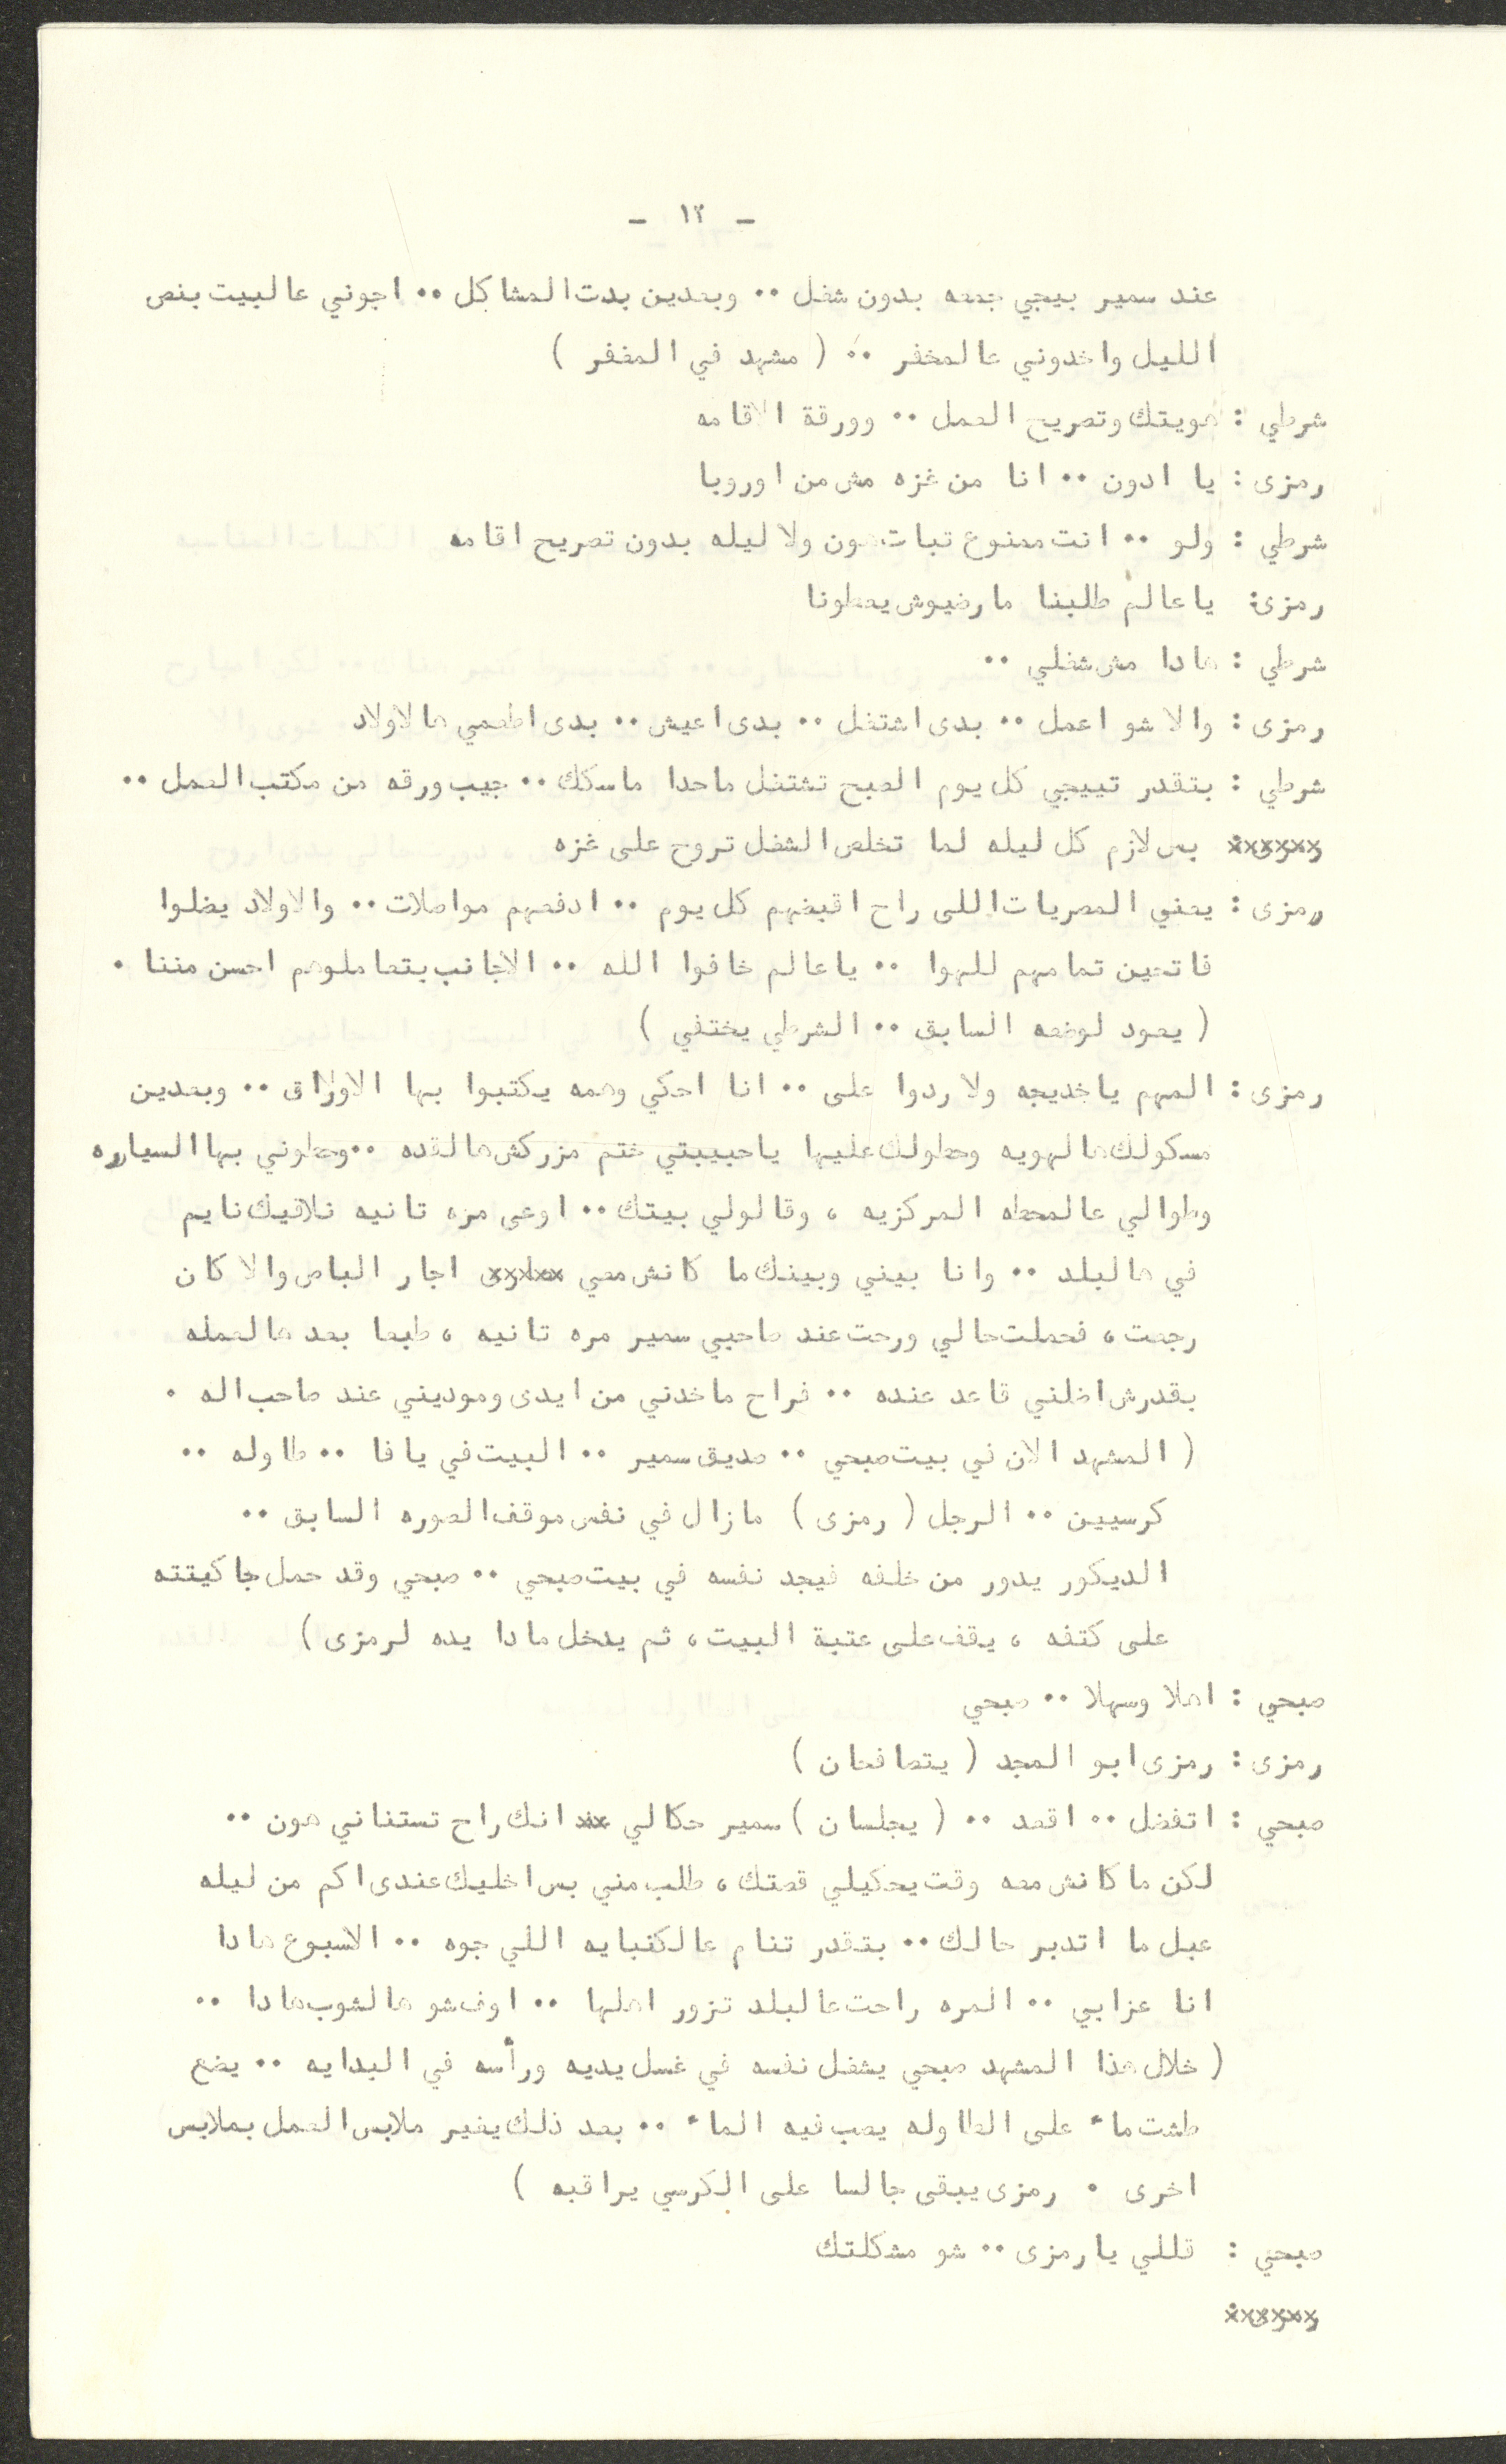 - ١٣ -
عند سمير بيجي جمعه بدون شغل .. وبعدين بدت المشاكل .. اجوني عالبيت بنص
الليل واخدوني عالمخفر .. ( مشهد في المغفر )
شرطي : هويتك وتصريح العمل .. وورقة الاقامه
رمزى : يا ادون .. انا من غزه مش من اوروبا
شرطي : ولو .. انت ممنوع تبات هون ولا ليله بدون تصريح اقامه
رمزى: ياعالم طلبنا مارضيوش يعطونا
شرطي : هادا مش شغلي ..
رمزى : والا شو اعمل .. بدى اشتغل .. بدى اعيش .. بدى اطعمي هالاولاد
شرطي : بتقدر تييجي كل يوم الصبح تشتغل ماحدا ماسكك .. جيب ورقه من مكتب العمل ..
xxxxxx بس لازم كل ليله لما تخلص الشغل تروح على غزه
رمزى : يعني المصريات اللى راح اقبضهم كل يوم .. ادفعهم مواصلات .. والاولاد يضلوا
فاتحين تمامهم للهوا .. ياعالم خافوا الله .. الاجانب بتعاملوهم احسن مننا .
( يعود لوضعه السابق .. الشرطي يختفي )
رمزى : المهم ياخديجه ولا ردوا على .. انا احكي وهمه يكتبوا بها الاوراق .. وبعدين
مسكولك هالهويه وحطولك عليها ياحبيبتي ختم مزركش هالقده .. وحطوني بها السياره
وطوالي عالمحطه المركزيه ، وقالولي بيتك .. اوعى مره تانيه نلاقيك نايم
في هالبلد .. وانا بيني وبينك ما كانش معي xxxxx اجار الباص والا كان
رجعت ، فحملت حالي ورحت عند صاحبي سمير مره تانيه ، طبعا بعد هالعمله
بقدرش اضلني قاعد عنده .. فراح ماخدني من ايدى وموديني عند صاحب اله .
( المشهد الان في بيت صبحي .. صديق سمير .. البيت في يافا .. طاوله ..
كرسيين .. الرجل ( رمزى ) مازال في نفس موقف الصوره السابق ..
الديكور يدور من خلفه فيجد نفسه في بيت صبحي .. صبحي وقد حمل جاكيتته
على كتفه ، يقف على عتبة البيت ، ثم يدخل مادا يده لرمزى )
صبحي : اهلا وسهلا .. صبحي
رمزى : رمزى ابو المجد ( يتصافحان )
صبحي : اتفضل .. اقعد .. ( يجلسان ) سمير حكالي xxx انك راح تستناني هون ..
لكن ما كانش معه وقت يحكيلي قصتك ، طلب مني بس اخليك عندى اكم من ليله
عبل ما اتدبر حالك .. بتقدر تنام عالكنبايه اللي جوه .. الاسبوع هادا
انا عزابي .. المره راحت عالبلد تزور اهلها .. اوف شو هالشوب هادا ..
( خلال هذا المشهد صبحي يشغل نفسه في غسل يديه ورأسه في البدايه .. يضع
طشت ماء على الطاوله يصب فيه الماء .. بعد ذلك يغير ملابس العمل بملابس
اخرى . رمزى يبقى جالسا على الكرسي يراقبه )
صبحي : قللي يارمزى .. شو مشكلتك
xxxxxx